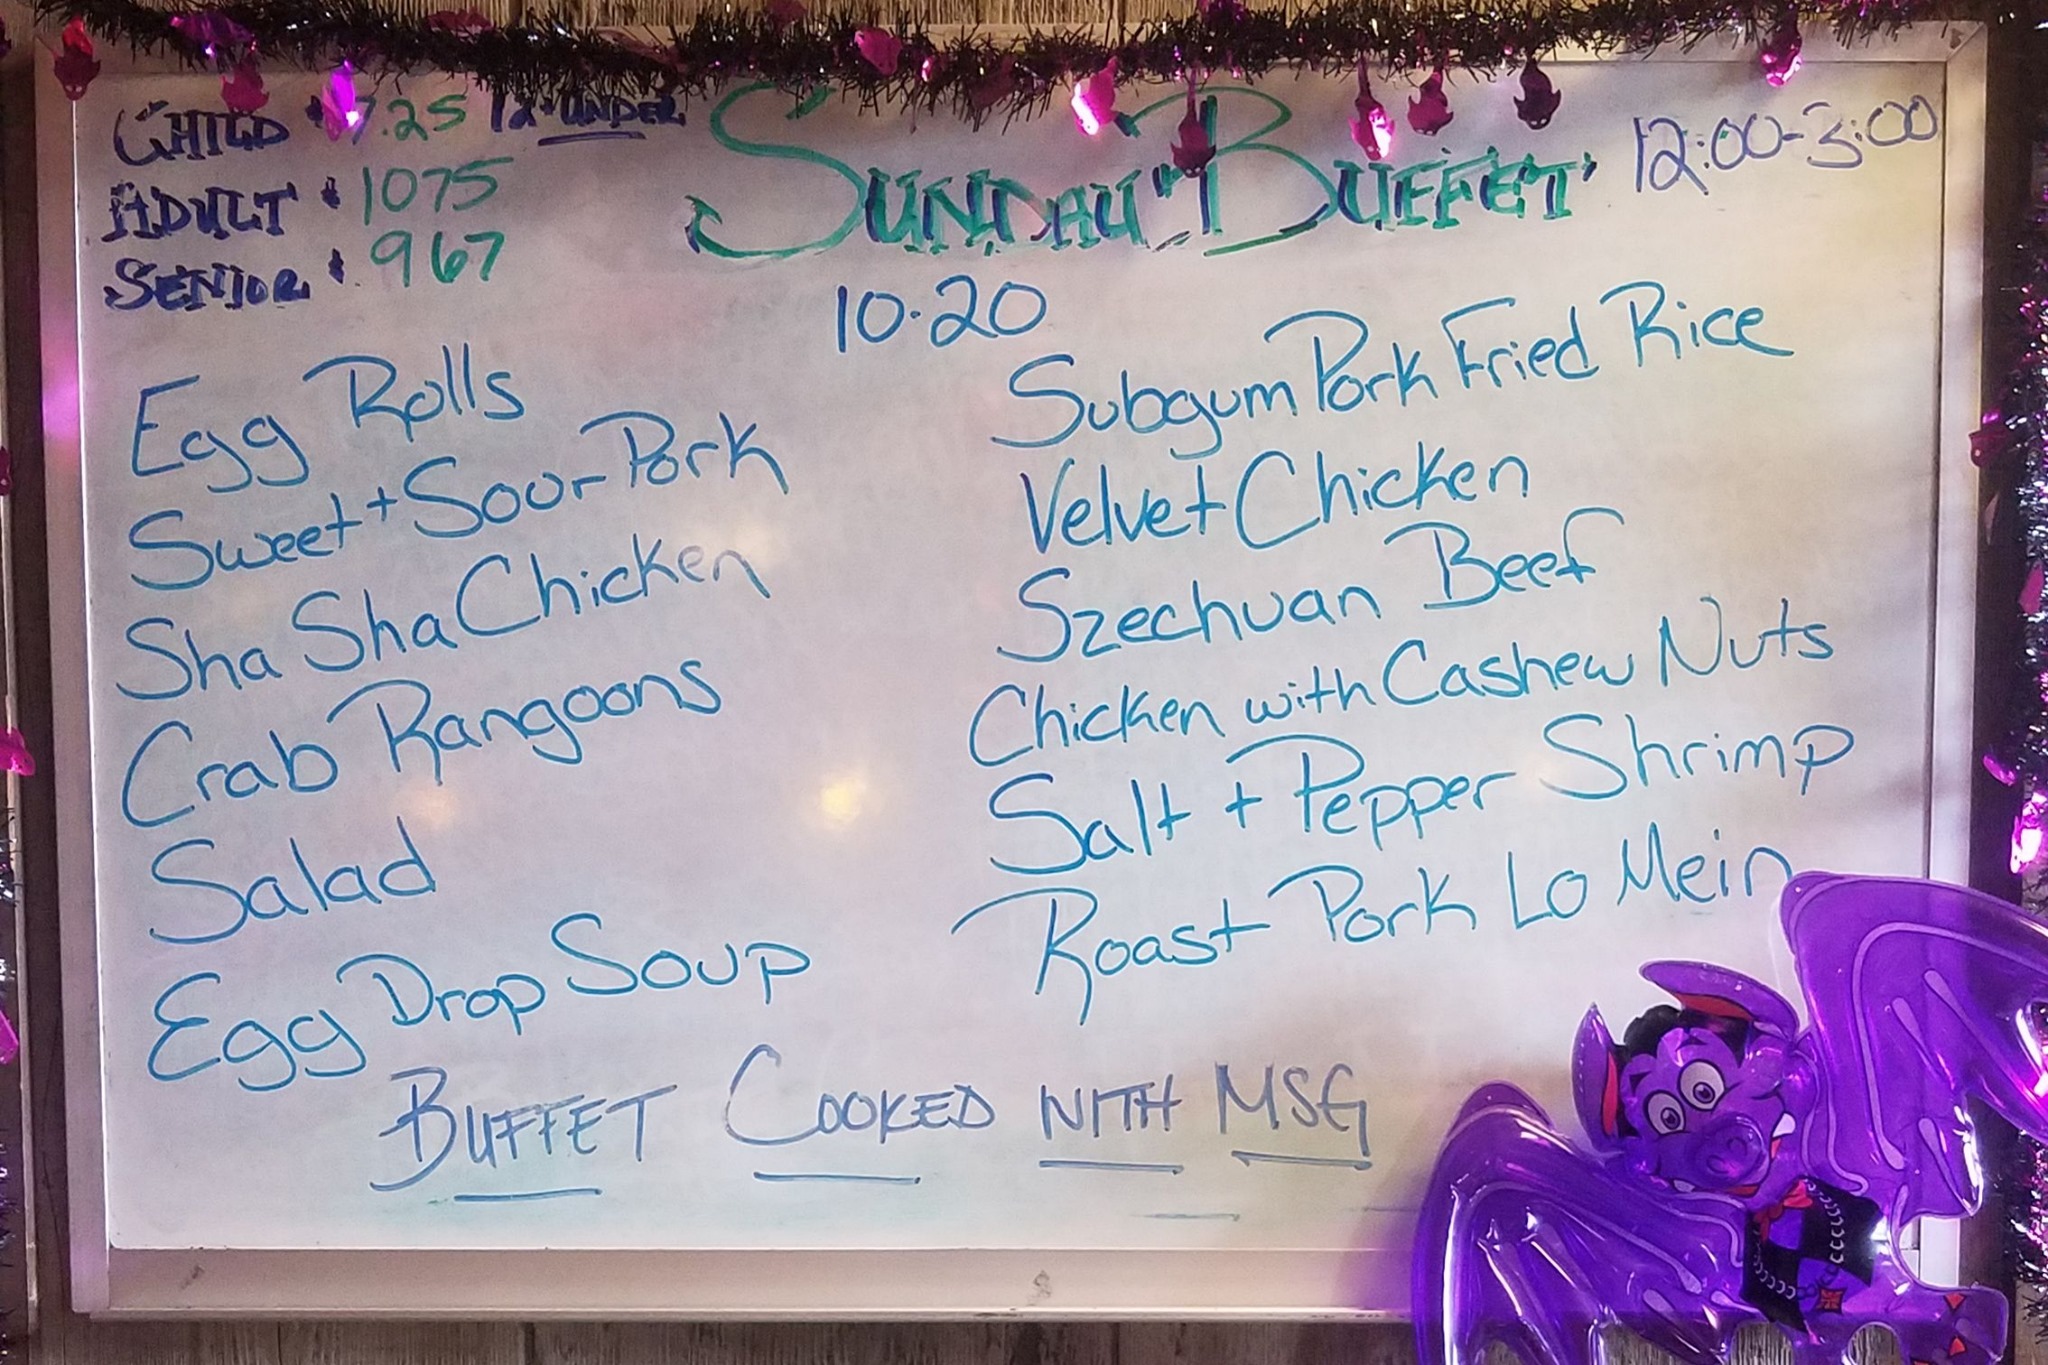 CHILD $7.25 12+UNDER
ADULT $1075
SENIOR $967
SUNDAY BUFFET
12:00-3:00
10.20
Egg Rolls
Sweet + Sour Pork
Sha Sha Chicken
Crab Rangoons
Salad
Egg Drop Soup
Subgum Pork Fried Rice
Velvet Chicken
Szechuan Beef
Chicken with Cashew Nuts
Salt + Pepper Shrimp
Roast Pork Lo Mein
BUFFET COOKED WITH MSG